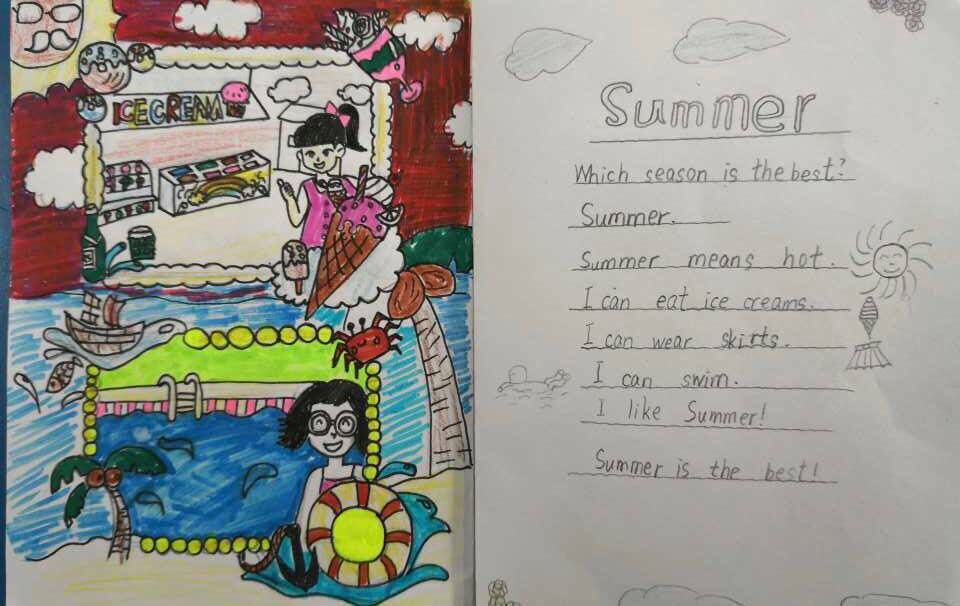 ICE CREAM
Summer
Which season is the best?
Summer.
Summer means hot.
I can eat ice creams.
I can wear skirts.
I can swim.
I like Summer!
Summer is the best!